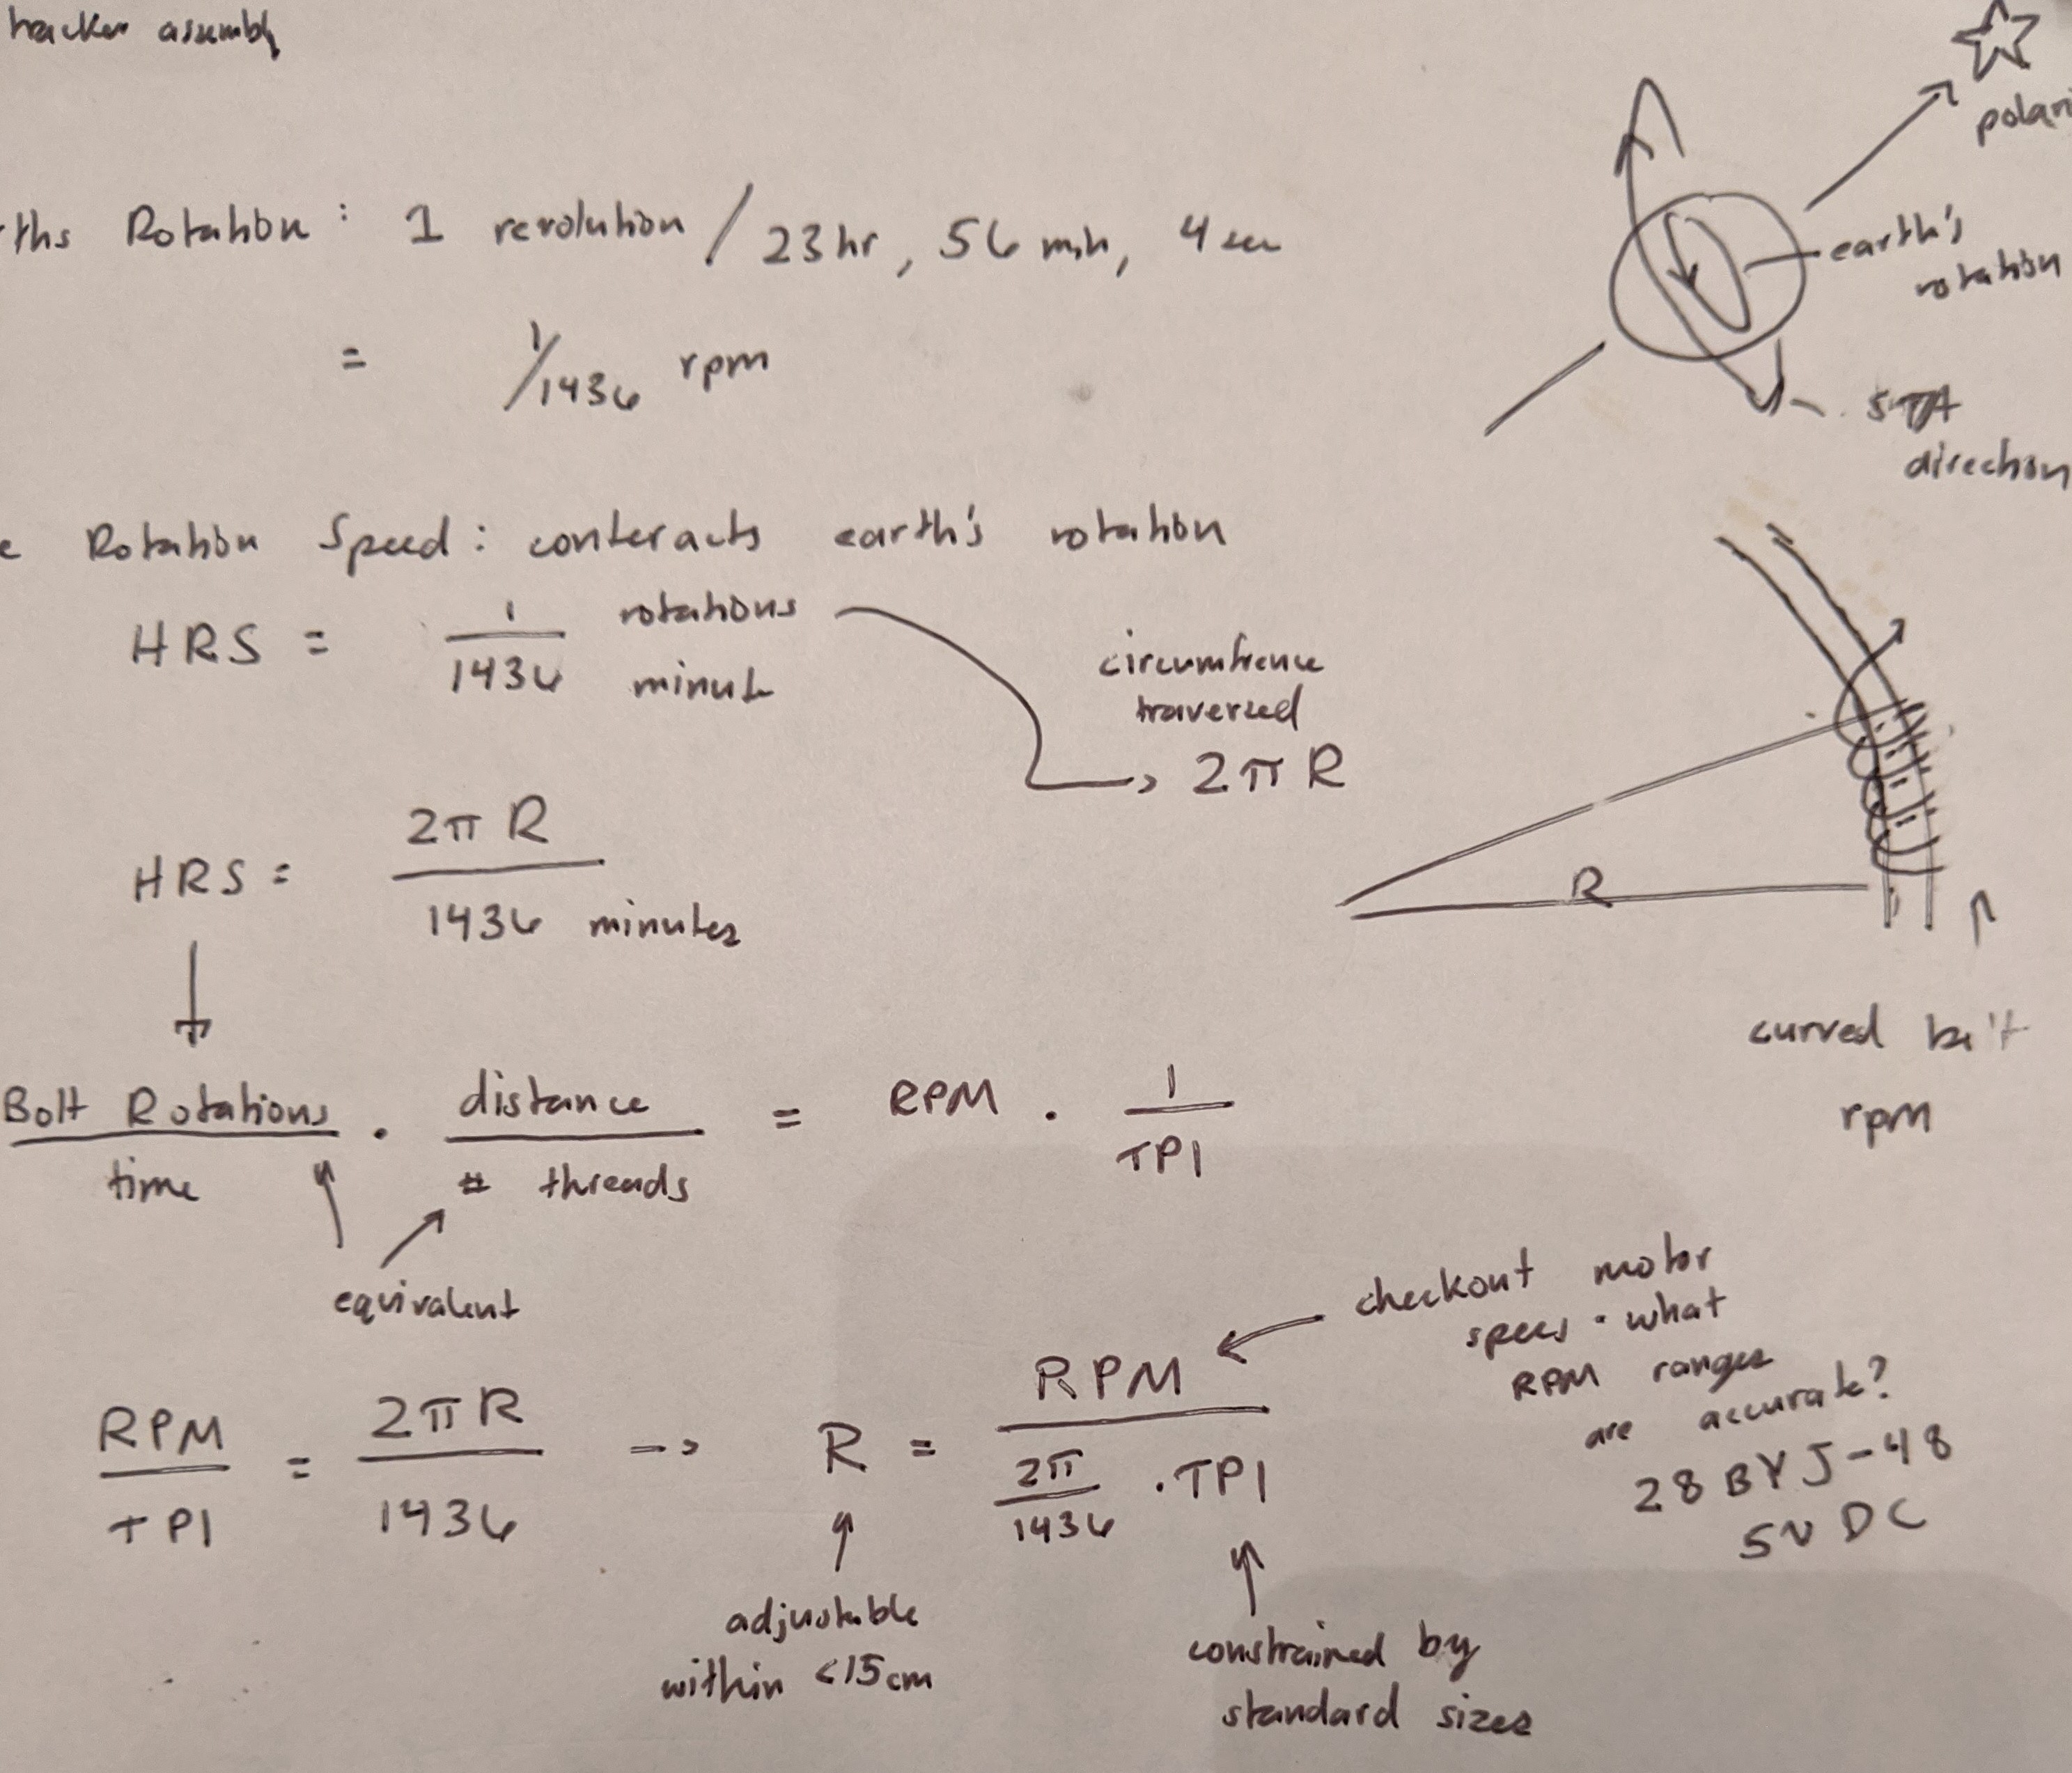 tracker assembly
polari
ths Rotation: 1 revolution / 23 hr, 56 min, 4 sec
earth's
rotation
= 1/1436 rpm
direction
e Rotation Speed: conteracts earth's rotation
HRS = 1/1436 rotations/minute
circumfrence
traversed
2π R
HRS = 2π R / 1436 minutes
R
curved bolt
rpm
Bolt Rotations / time · distance / # threads = RPM · 1/TPI
equivalent
checkout motor
specs · what
RPM ranges
are accurate?
28BYJ-48
5V DC
RPM / TPI = 2π R / 1436 -> R = RPM / (2π/1436 · TPI)
adjustable
within <15cm
constrained by
standard sizes